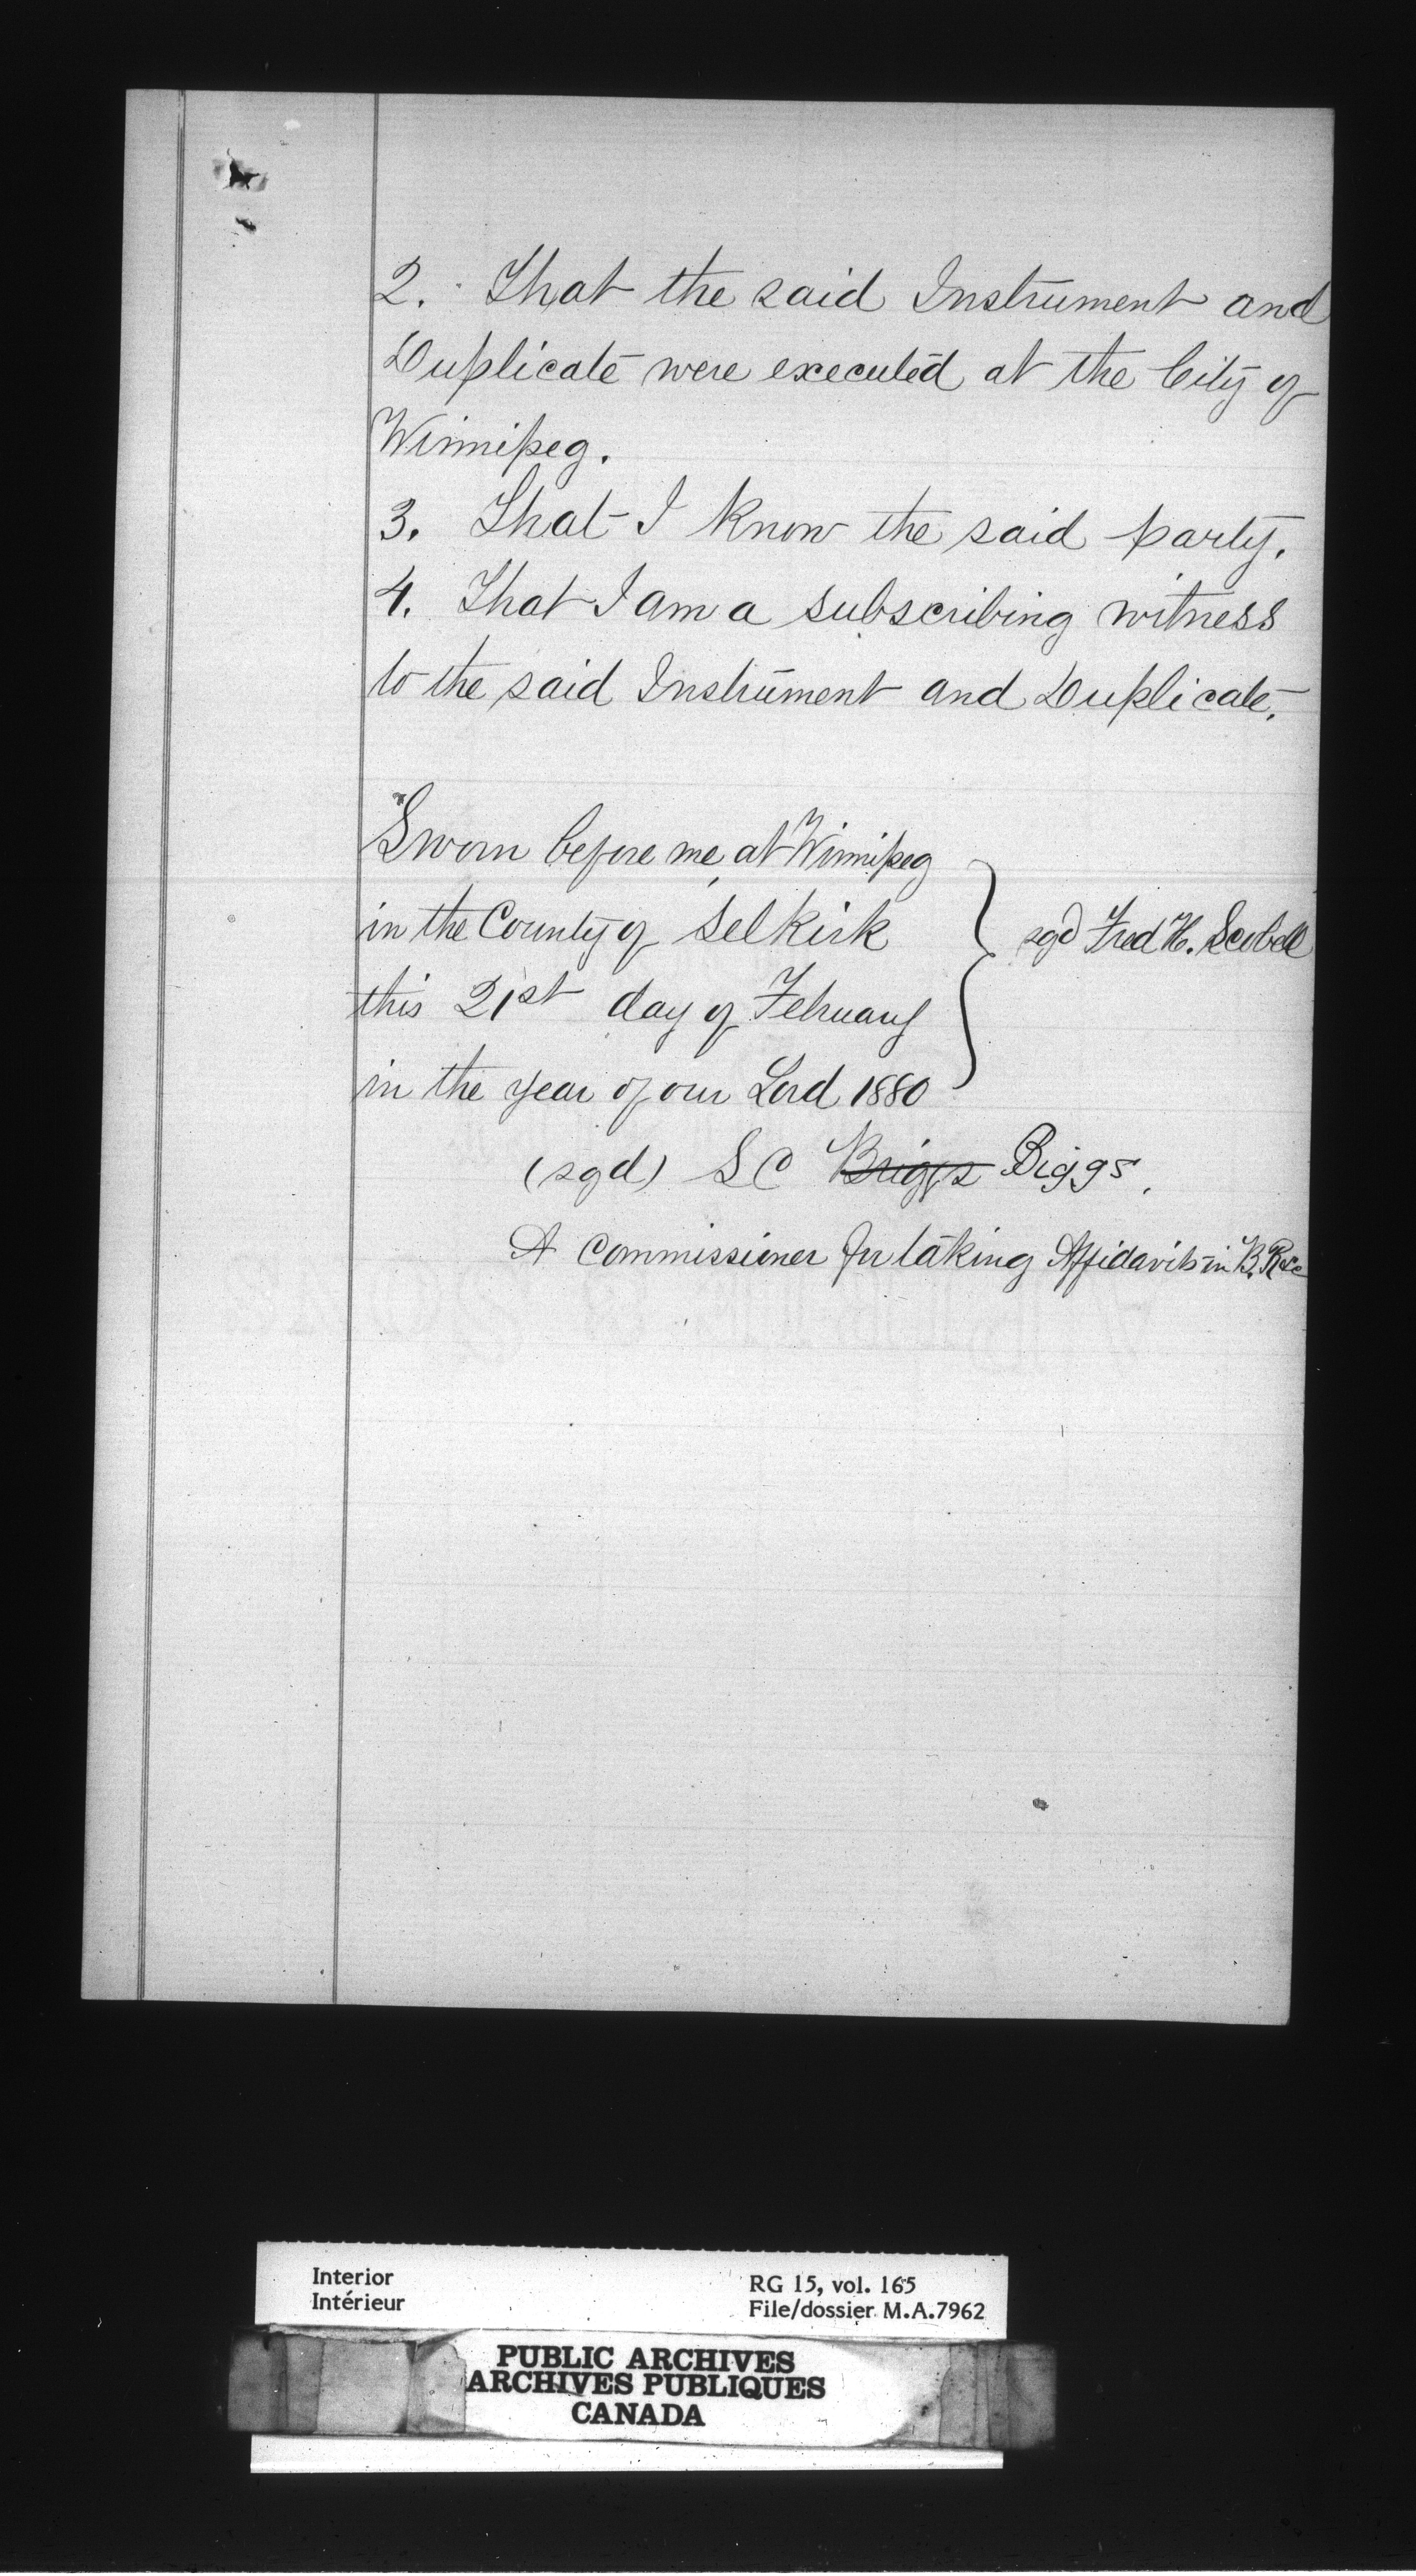 2. That the said Instrument and
Duplicate were executed at the City of
Winnipeg.
3. That I know the said party.
4. That I am a subscribing witness
to the said Instrument and Duplicate.
Sworn before me at Winnipeg
in the County of Selkirk
this 21st day of February
in the year of our Lord 1880
sgd Fred H. Scobell
(sgd) S C Briggs Biggs.
A Commissioner for taking Affidavits in B.R. &c
Interior
Intérieur
RG 15, vol. 165
File/dossier M.A.7962
PUBLIC ARCHIVES
ARCHIVES PUBLIQUES
CANADA